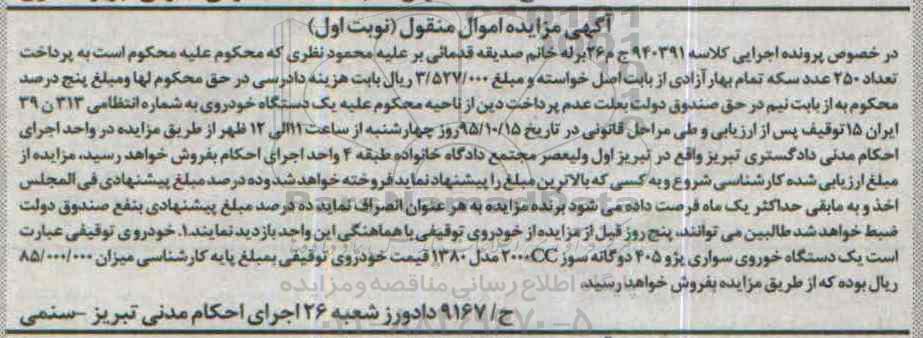 آگهی مزایده اموال منقول (نوبت اول)
در خصوص پرونده اجرایی کلاسه ۹۴۰۳۹۱ ج م ۲۶ برله خانم صدیقه قدمائی بر علیه محمود نظری که محکوم علیه محکوم است به پرداخت
تعداد ۲۵۰ عدد سکه تمام بهار آزادی از بابت اصل خواسته و مبلغ ۳/۵۲۷/۰۰۰ ریال بابت هزینه دادرسی در حق محکوم لها و مبلغ پنج درصد
محکوم به از بابت نیم در حق صندوق دولت بعلت عدم پرداخت دین از ناحیه محکوم علیه یک دستگاه خودروی به شماره انتظامی ۳۱۳ ن ۳۹
ایران ۱۵ توقیف پس از ارزیابی و طی مراحل قانونی در تاریخ ۹۵/۱۰/۱۵ روز چهارشنبه از ساعت ۱۱ الی ۱۲ ظهر از طریق مزایده در واحد اجرای
احکام مدنی دادگستری تبریز واقع در تبریز اول ولیعصر مجتمع دادگاه خانواده طبقه ۴ واحد اجرای احکام بفروش خواهد رسید، مزایده از
مبلغ ارزیابی شده کارشناسی شروع و به کسی که بالاترین مبلغ را پیشنهاد نماید فروخته خواهد شد و ده درصد مبلغ پیشنهادی فی المجلس
اخذ و به مابقی حداکثر یک ماه فرصت داده می شود برنده مزایده به هر عنوان انصراف نماید ده درصد مبلغ پیشنهادی بنفع صندوق دولت
ضبط خواهد شد طالبین می توانند، پنج روز قبل از مزایده از خودروی توقیفی با هماهنگی این واحد بازدید نمایند.۱. خودروی توقیفی عبارت
است یک دستگاه خوروی سواری پژو ۴۰۵ دوگانه سوز ۲۰۰۰CC مدل ۱۳۸۰ قیمت خودروی توقیفی بمبلغ پایه کارشناسی میزان ۸۵/۰۰۰/۰۰۰
ریال بوده که از طریق مزایده بفروش خواهد رسید،
پایگاه اطلاع رسانی مناقصه و مزایده
ح/۹۱۶۷ دادورز شعبه ۲۶ اجرای احکام مدنی تبریز -سنمی